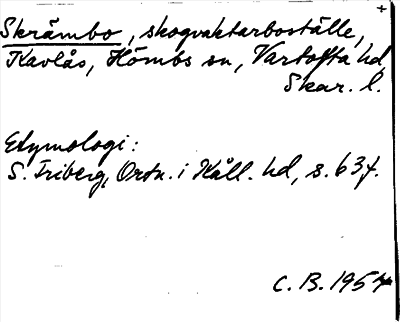 +
Skrämbo, skogvaktarboställe,
Kavlås, Hömbs sn, Vartofta hd
Skar. l.
Etymologi:
S. Friberg, Ortn. i Kåll. hd, s. 63 f.
C. B. 1954